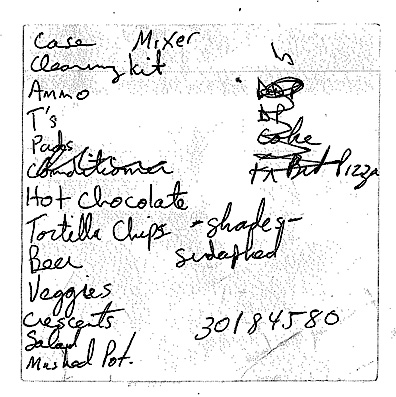 Case Mixer
Cleaning kit
Ammo
T's
DP
Pads
Coke
Conditioner
Bit Pizza
Hot Chocolate
Tortilla Chips - shades -
Beer
Veggies
Crescents 30184580
Salad
Mashed Pot.